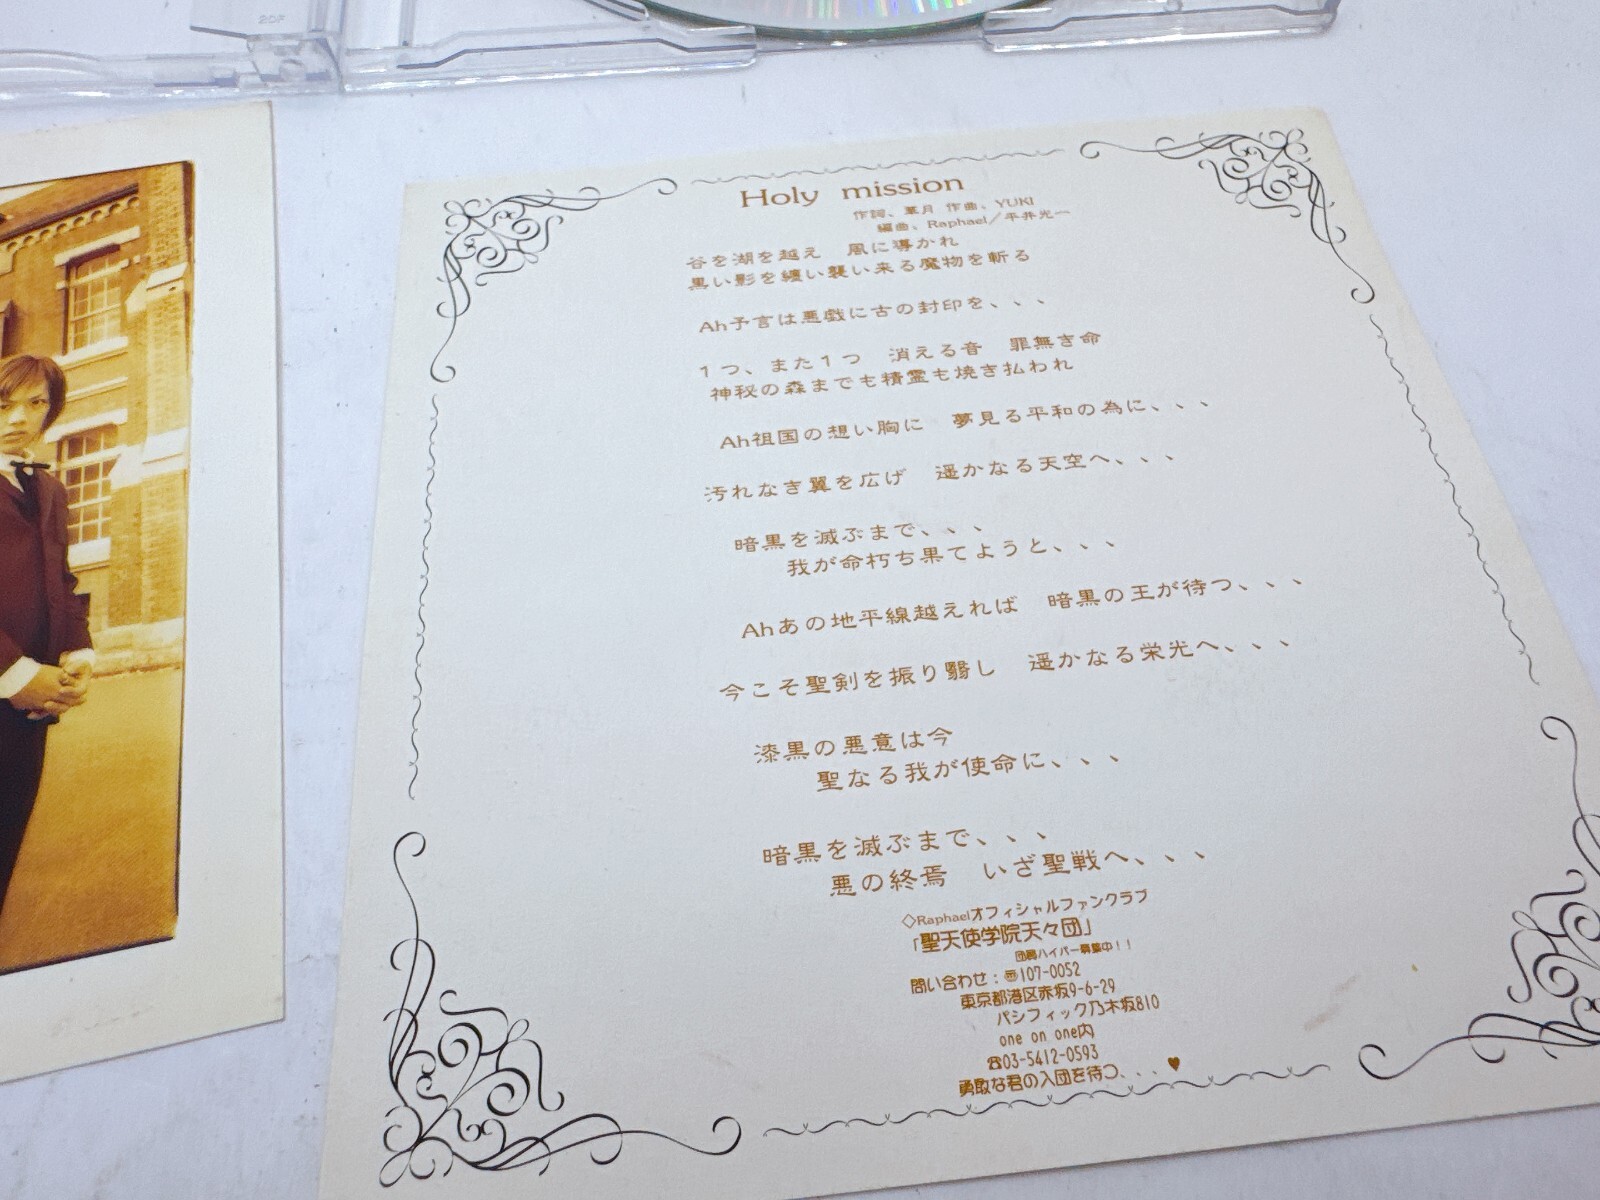 Holy mission
作詞、華月 作曲、YUKI
編曲、Raphael／平井光一
谷を湖を越え 風に導かれ
黒い影を纏い襲い来る魔物を斬る
Ah予言は悪戯に古の封印を、、、
1つ、また1つ 消える音 罪無き命
神秘の森までも精霊も焼き払われ
Ah祖国の想い胸に 夢見る平和の為に、、、
汚れなき翼を広げ 遥かなる天空へ、、、
暗黒を滅ぶまで、、、
我が命朽ち果てようと、、、
Ahあの地平線越えれば 暗黒の王が待つ、、、
今こそ聖剣を振り翳し 遥かなる栄光へ、、、
漆黒の悪意は今
聖なる我が使命に、、、
暗黒を滅ぶまで、、、
悪の終焉 いざ聖戦へ、、、
◇Raphaelオフィシャルファンクラブ
「聖天使学院天々団」
団員ハイパー募集中！！
問い合わせ：〠107-0052
東京都港区赤坂9-6-29
パシフィック乃木坂810
one on one内
☎03-5412-0593
勇敢な君の入団を待つ、、、♥